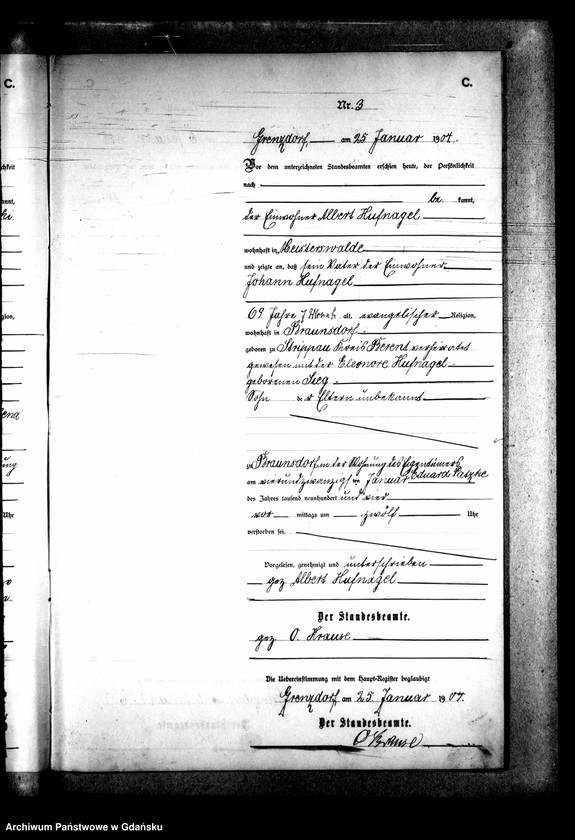 C.
C.
Nr. 3
Grenzdorf am 25 Januar 1904.
Vor dem unterzeichneten Standesbeamten erschien heute, der Persönlichkeit
nach
be kannt,
der Einwohner Albert Hufnagel
wohnhaft in Meisterswalde
und zeigte an, daß sein Vater der Einwohner
Johann Hufnagel
69 Jahre 7 Monat alt, evangelischer Religion,
wohnhaft in Braunsdorf
geboren zu Strippau Kreis Berent verheiratet
gewesen mit der Eleonore Hufnagel
geborenen Sieg
Sohn der Eltern unbekannt
zu Braunsdorf in der Wohnung des Eigentümers
Eduard Patzke
am vierundzwanzigsten Januar
des Jahres tausend neunhundert und vier
vor mittags um zwölf Uhr
verstorben sei.
Vorgelesen, genehmigt und unterschrieben
gez Albert Hufnagel
Der Standesbeamte.
gez. O. Krause
Die Uebereinstimmung mit dem Haupt-Register beglaubigt
Grenzdorf am 25. Januar 1904.
Der Standesbeamte.
O Krause
Archiwum Państwowe w Gdańsku